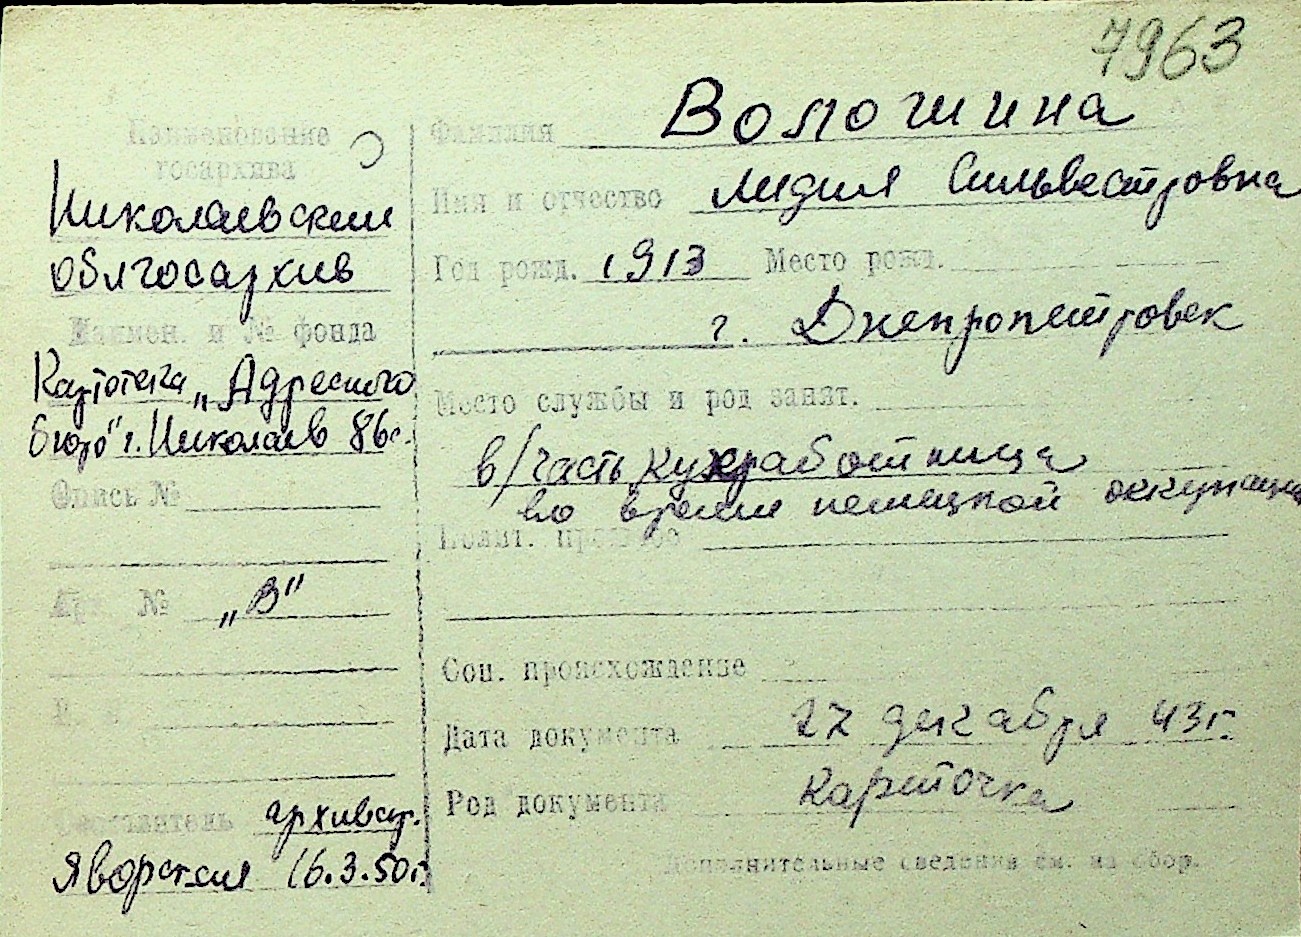 7963
Наименование
госархива
Николаевский
облгосархив
Наимен. и № фонда
Картотека „Адресного
бюро" г. Николаев 86с.
Опись №
Арх. № „В"
Составитель архивар.
Яворская 16.3.50г.
Фамилия Волошина
Имя и отчество Лидия Сильвестровна
Год рожд. 1913 Место рожд.
г. Днепропетровск
Место службы и род занят.
в/часть кухработница
во время немецкой оккупации
Полит.
Соц. происхождение
Дата документа 27 декабря 43г.
Род документа Карточка
Дополнительные сведения см. на обор.